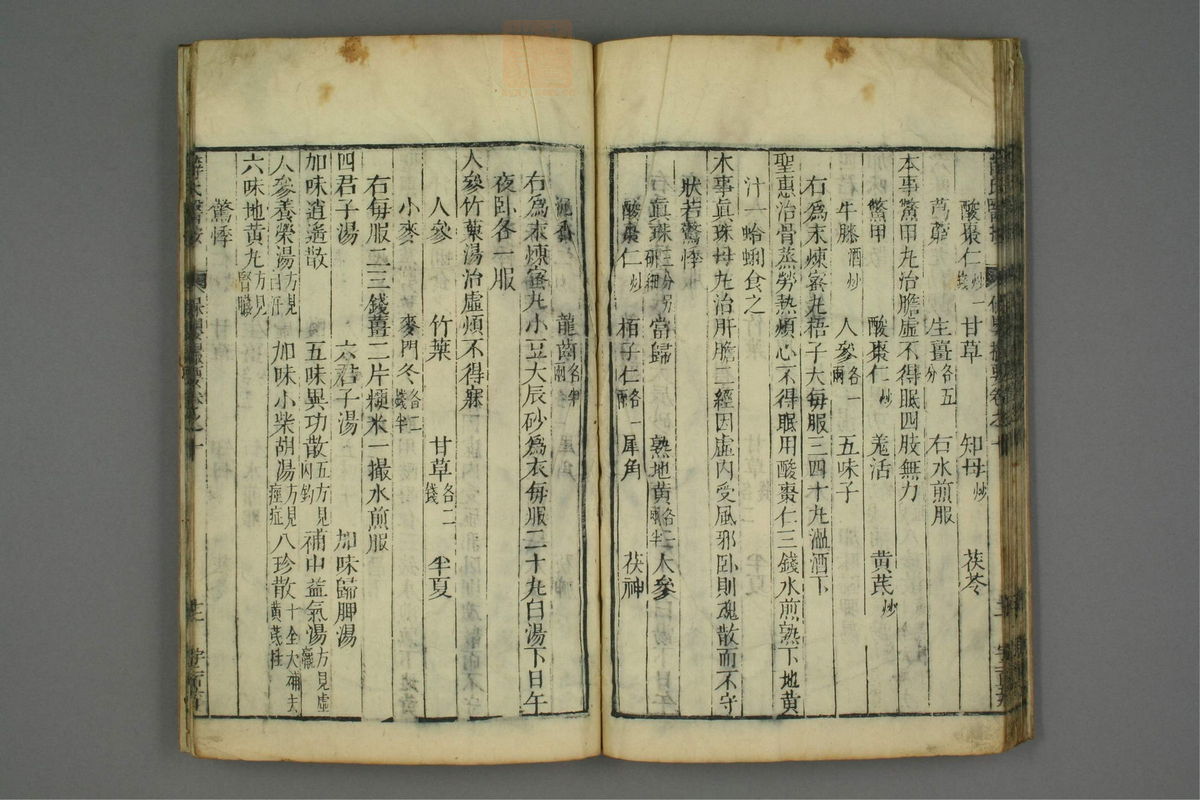 酸棗仁炒一錢 甘草 知母炒 茯苓
萵苣 生薑各五分 右水煎服
本事鱉甲丸治膽虛不得眠四肢無力
鱉甲 酸棗仁炒 羗活 黃芪炒
牛膝酒炒 人參各一兩 五味子
右為末煉蜜丸梧子大每服三四十丸溫酒下
聖惠治骨蒸勞熱煩心不得眠用酸棗仁三錢水煎熟下地黃
汁一蛤蜊食之
本事真珠母丸治肝膽二經因虛內受風邪卧則魂散而不守
狀若驚悸
真珠三分另研細 當歸 熟地黃各一兩半 人參
酸棗仁炒 栢子仁各一兩 犀角 茯神
沉香 龍齒各半兩
右為末煉蜜丸小豆大辰砂為衣每服二十丸白湯下日午
夜卧各一服
人參竹葉湯治虛煩不得寐
人參 竹葉 甘草各二錢 半夏
小麥 麥門冬各一錢半
右每服二三錢薑二片粳米一撮水煎服
四君子湯 六君子湯 加味歸脾湯
加味逍遙散 五味異功散五方見內釣 補中益氣湯方見虛羸
人參養榮湯方見白 加味小柴胡湯方見痙症 八珍散十全大補去黃芪桂
六味地黃丸方見腎臟
驚悸